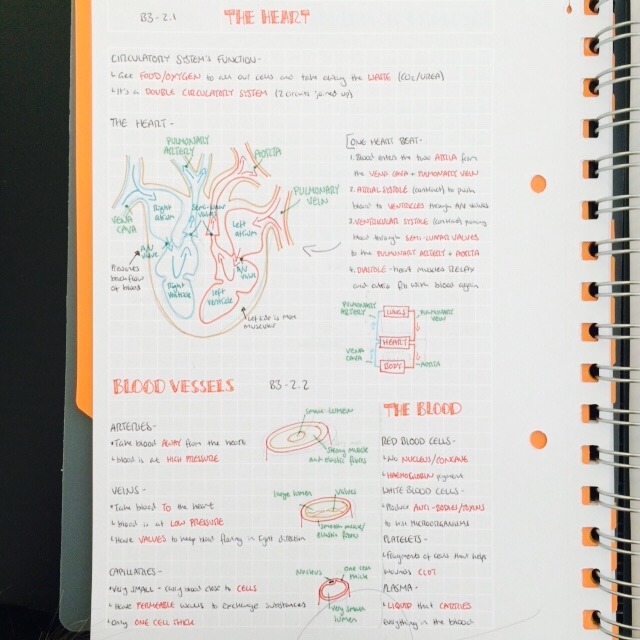 B3-2.1 THE HEART
CIRCULATORY SYSTEM'S FUNCTION-
Get FOOD/OXYGEN to all our cells and take away the WASTE (CO2/UREA)
It's a DOUBLE CIRCULATORY SYSTEM (2 circuits joined up)
THE HEART-
PULMONARY ARTERY
AORTA
PULMONARY VEIN
VENA CAVA
Right atrium
Semi-lunar valves
Left atrium
A/V valve
A/V valve
Prevents backflow of blood
Right ventricle
Left ventricle
Left side is more muscular
ONE HEART BEAT-
1. Blood enters the two ATRIA from
the VENA CAVA + PULMONARY VEIN
2. ATRIAL SYSTOLE (contract) to push
blood to VENTRICLES through A/V valves
3. VENTRICULAR SYSTOLE (contract)
blood through SEMI-LUNAR VALVES
to the PULMONARY ARTERY + AORTA
4. DIASTOLE - heart muscles RELAX
and with blood again
PULMONARY ARTERY
LUNGS
PULMONARY VEIN
HEART
VENA CAVA
BODY
AORTA
BLOOD VESSELS B3-2.2
ARTERIES-
•Take blood AWAY from the heart
blood is at HIGH PRESSURE
small lumen
strong muscle and elastic fibres
VEINS-
•Take blood TO the heart
blood is at LOW PRESSURE
Have VALVES to keep blood flowing in right direction
large lumen
valves
smooth muscle/ elastic fibres
CAPILLARIES-
•Very SMALL - carry blood close to CELLS
Have PERMEABLE walls to exchange substances
Only ONE CELL THICK
Nucleus
one cell thick
very small lumen
THE BLOOD
RED BLOOD CELLS-
No NUCLEUS/CONCAVE
HAEMOGLOBIN pigment
WHITE BLOOD CELLS-
Produce ANTI-BODIES/TOXINS
to kill MICROORGANISMS
PLATELETS-
Fragments of cells that helps
wounds CLOT
PLASMA-
LIQUID that CARRIES
everything in the blood